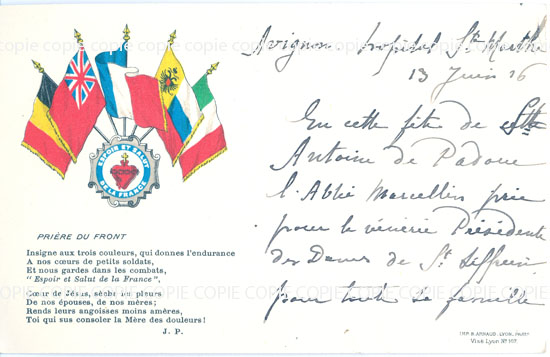 COPIE COPIE COPIE COPIE COPIE COPIE COPIE
Avignon hopital Ste Marthe
13 Juin 16
En cette fête de Ste
Antoine de Padoue
l'Abbé Marcellin prie
pour la vénérée Présidente
des Dames de St
pour toute sa famille
ESPOIR ET SALUT
DE LA FRANCE
PRIÈRE DU FRONT
Insigne aux trois couleurs, qui donnes l'endurance
A nos cœurs de petits soldats,
Et nous gardes dans les combats,
"Espoir et Salut de la France",
Cœur de Jésus, sèche les pleurs
De nos épouses, de nos mères;
Rends leurs angoisses moins amères,
Toi qui sus consoler la Mère des douleurs!
J. P.
LYON, PARIS
Visé Lyon No